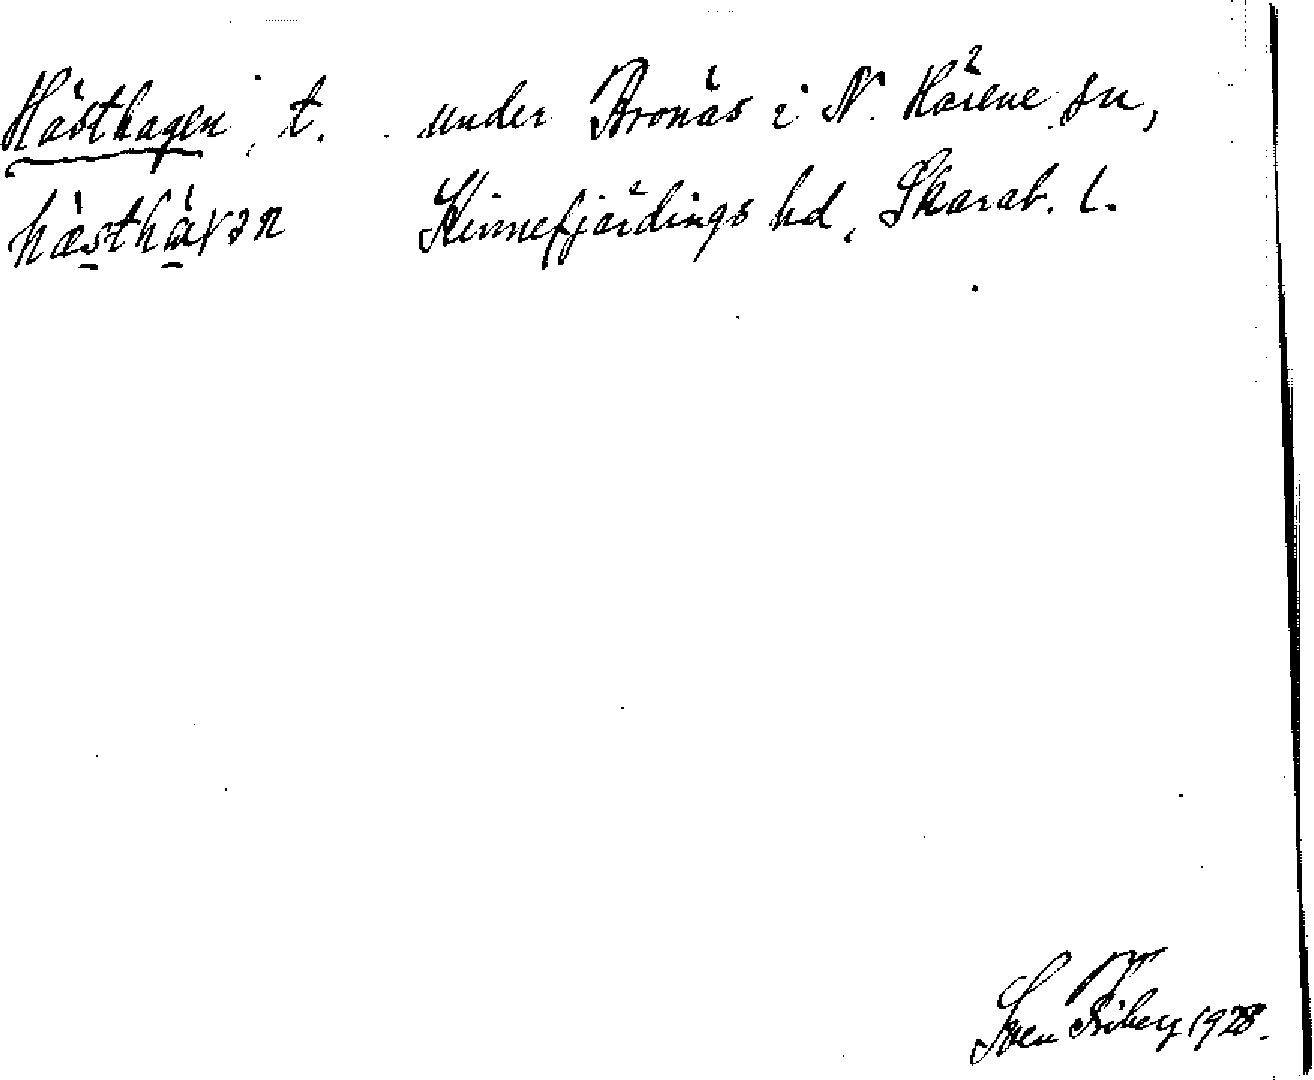 Hästhagen, t. under Bronäs i N. Härene sn,
hæ̀sthàɣən Kinnefjärdings hd, Skarab. l.
Sven Friberg 1928.